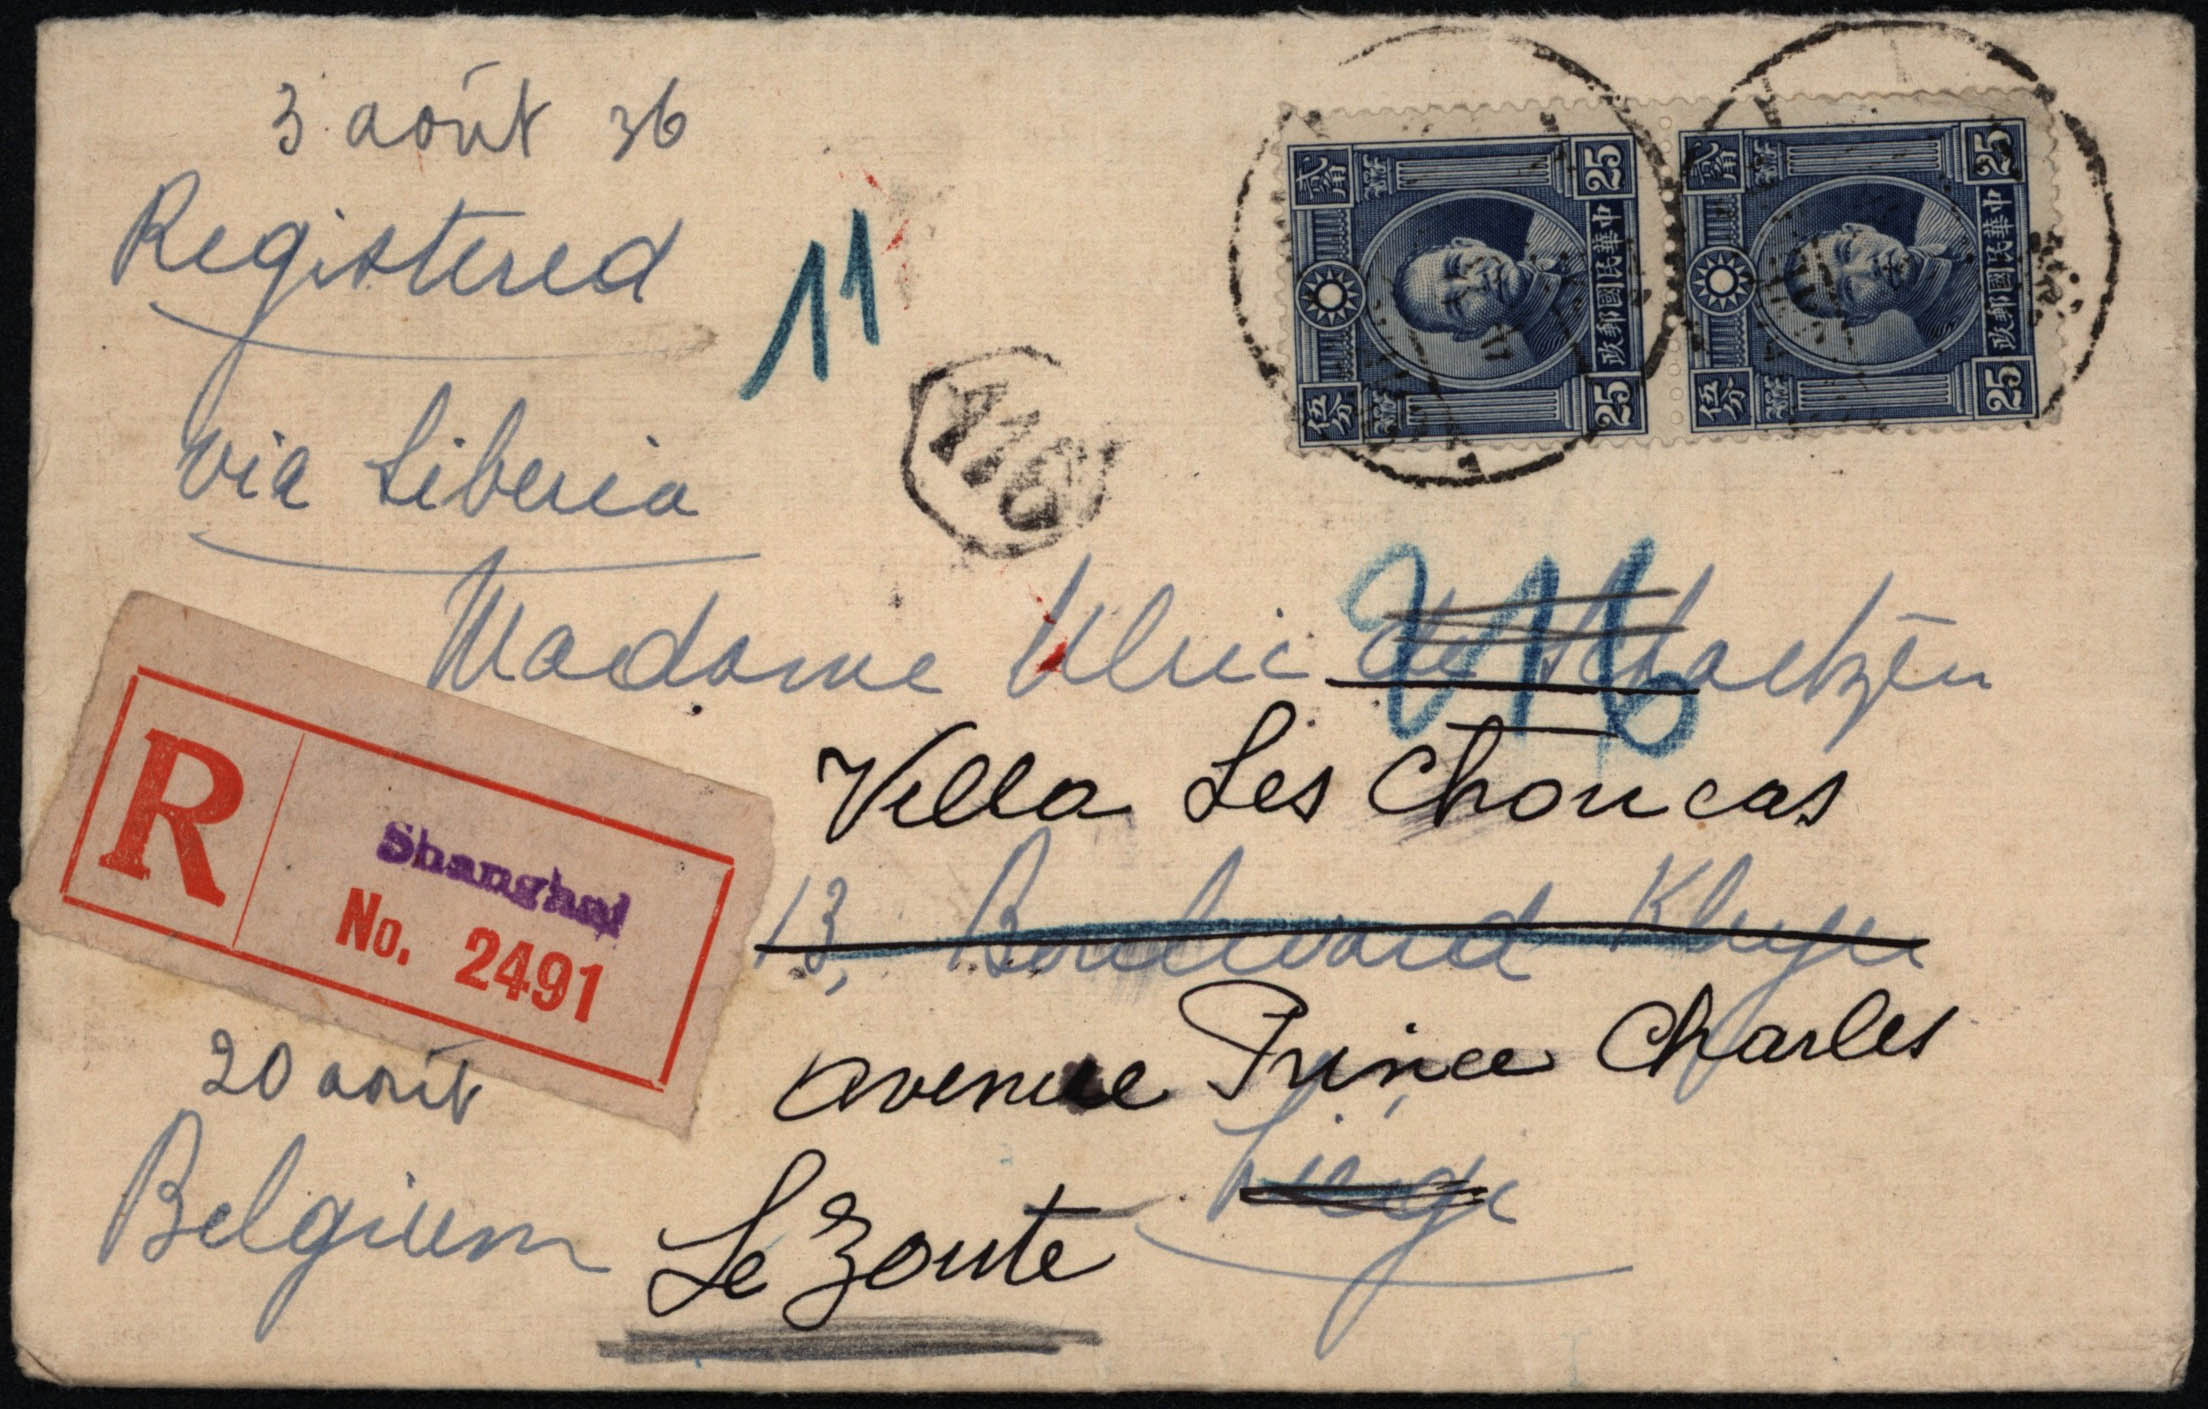 3 août 36
Registered
via Liberia
11
A16
25 中華民國郵政 25
貳角 伍分
25 中華民國郵政 25
貳角 伍分
Madame Ulric de Schaetzen
Villa Les Choucas
13, Boulevard
avenue Prince Charles
Liége
Le Zoute
R
Shanghai
No. 2491
20 août
Belgium